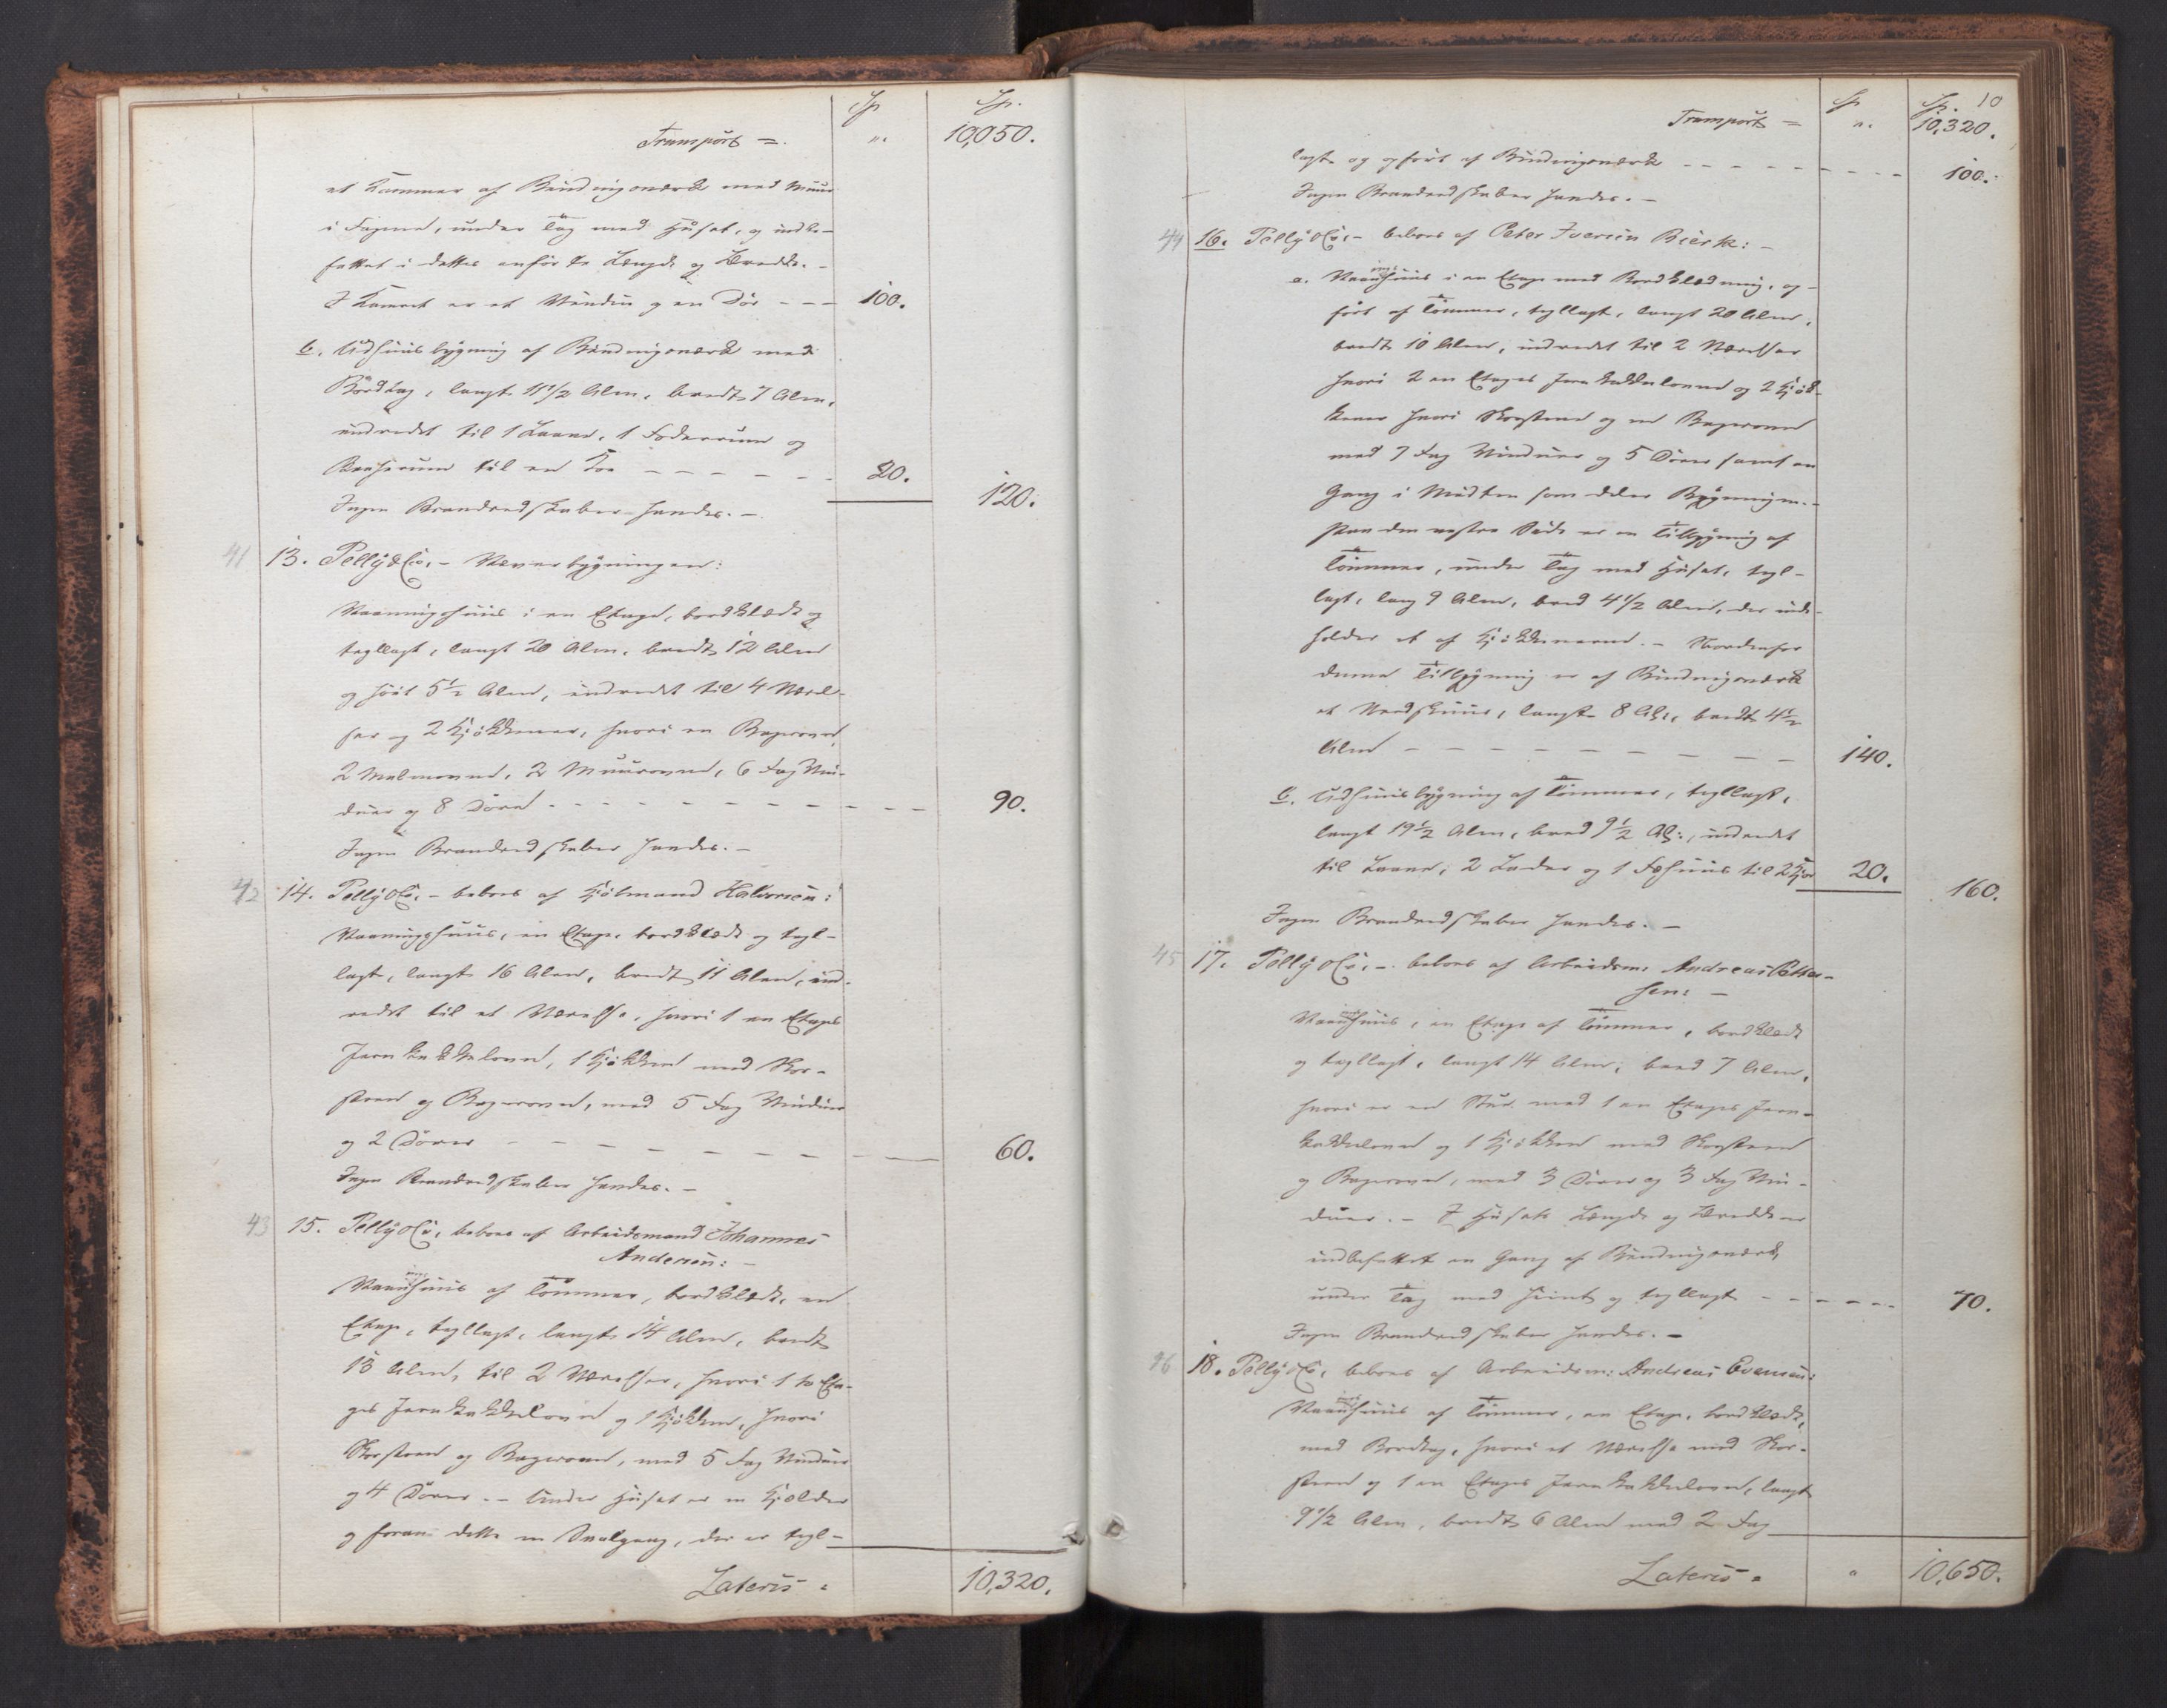 Sp Sp.
Transport = „. 10,050.
et Kammer af Bindingsværk med Muur
i Fagene, under Tag med Huset, og indbe-
fattet i dettes anførte Længde og Bredde. -
I Kamret er et Vindue og en Dör - - - 100.
b. Udhuusbygning af Bindingsværk med
Bordtag, langt 11 1/2 Alen, bredt 7 Alen,
indredet til 1 Laave, 1 Foderrum og
Baaserum til en Koe - - - - - 20. 120.
Ingen Brandredskaber havdes. -
41 13. Pelly & Co. - Væverbygningen:
Vaaningshuus i en Etage, bordklædt og
tegllagt, langt 20 Alen, bredt 12 Alen
og höit 5 1/2 Alen, indredet til 4 Værel-
ser og 2 Kjökkener, hvori en Bagerovn,
2 Malmovne, 2 Muurovne, 6 Fag Vin-
duer og 8 Döre - - - - - - - - - - 90.
Ingen Brandredskaber havdes. -
42 14. Pelly & Co. - beboes af Kjölmand Halvorsen:
Vaaningshuus, en Etage, bordklædt og tegl-
lagt, langt 16 Alen, bredt 11 Alen, ind-
redet til et Værelse, hvori 1 en Etages
Jernkakkelovn, 1 Kjökken med Skor-
steen og Bagerovn, med 5 Fag Vinduer
og 2 Dörer - - - - - - - - - 60.
Ingen Brandredskaber havdes. -
43 15. Pelly & Co. beboes af Arbeidsmand Johannes
Andersen: -
Vaaningshuus af Tömmer, bordklædt, en
Etage, tegllagt, langt 14 Alen, bredt
13 Alen, til 2 Værelser, hvori 1 to Eta-
ges Jernkakkelovn og 1 Kjökken, hvori
Skorsteen og Bagerovn, med 5 Fag Vinduer
og 4 Dörer. - Under Huset er en Kjelder
og foran dette en Svalgang, der er tegl-
Lateris = 10,320.
Sp Sp. 10
Transport = „. 10,320.
lagt og opfört af Bindingsværk - - - - - - - - 100.
Ingen Brandredskaber havdes. -
44 16. Pelly & Co. - beboes af Peter Iversen Bierk: -
a. Vaaningshuus i en Etage med Bordklædning, op-
fört af Tömmer, tegllagt, langt 20 Alen,
bredt 10 Alen, indredet til 2 Værelser
hvori 2 en Etages Jernkakkelovne og 2 Kjök-
kener hvori Skorstene og en Bagerovn
med 7 Fag Vinduer og 5 Dörer samt en
Gang i Midten som deler Bygningen. -
Paa den vestre Side er en Tilbygning af
Tömmer, under Tag med Huset, tegl-
lagt, lang 9 Alen, bred 4 1/2 Alen, der inde-
holder et af Kjökkenerne. - Nordenfor
denne Tilbygning er af Bindingsværk
et Vedskuur, langt 8 Al:, bredt 4 1/2
Alen - - - - - - - - - - 140.
b. Udhuusbygning af Tömmer, tegllagt,
langt 19 1/2 Alen, bred 9 1/2 Al:, indredet
til Laave, 2 Lader og 1 Fæhuus til 2 Kjör 20. 160.
Ingen Brandredskaber havdes. -
45 17. Pelly & Co. - beboes af Arbeidsm: Andreas Petter-
sen: -
Vaaningshuus, en Etage af Tömmer, bordklædt
og tegllagt, langt 14 Alen, bred 7 Alen,
hvori er en Stue med 1 en Etages Jern-
kakkelovn og 1 Kjökken med Skorsteen
og Bagerovn, med 3 Dörer og 3 Fag Vin-
duer. - I Husets Længde og Bredde er
indbefattet en Gang af Bindingsværk,
under Tag med Huset og tegllagt - - - - - - 70.
Ingen Brandredskaber havdes. -
46 18. Pelly & Co. beboes af Arbeidsm: Andreas Evensen:
Vaaningshuus af Tömmer, en Etage, bordklædt,
med Bordtag, hvori et Værelse med Skor-
steen og 1 en Etages Jernkakkelovn, langt
9 1/2 Alen, bredt 6 Alen med 2 Fag
Lateris = „ 10,650.